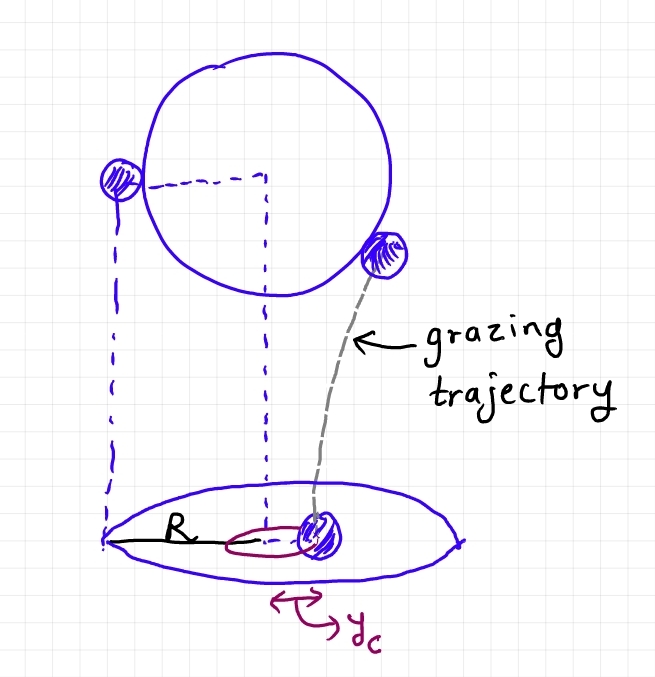 grazing
trajectory
R
y_c